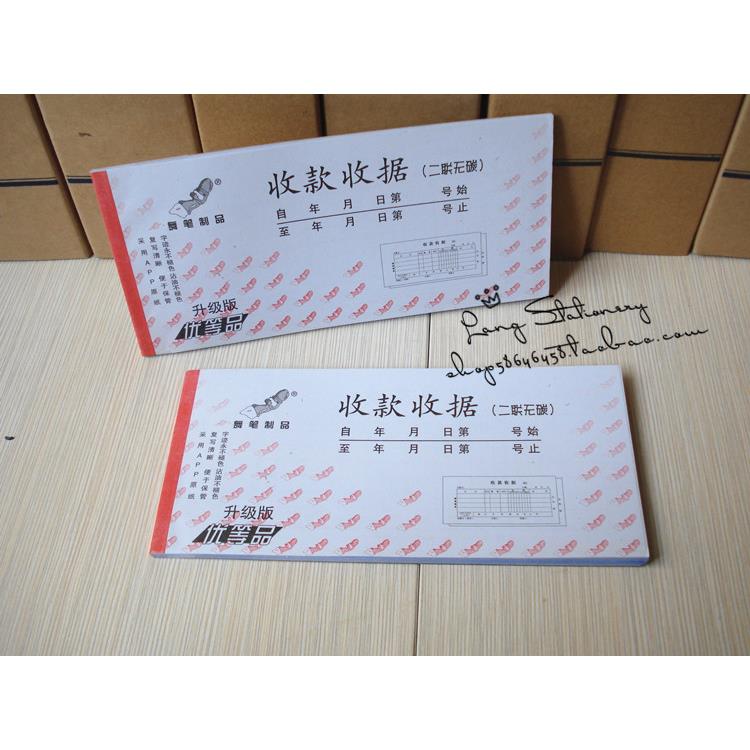 收款收据(二联无碳)
自 年 月 日第 号始
至 年 月 日第 号止
®
舞笔制品
字迹永不褪色沾油不褪色
复写清晰 便于保管
采用APP原纸
升级版
优等品
收款收据
Lang Stationery
shop58646458.taobao.com
收款收据(二联无碳)
自 年 月 日第 号始
至 年 月 日第 号止
®
舞笔制品
字迹永不褪色沾油不褪色
复写清晰 便于保管
采用APP原纸
升级版
优等品
收款收据